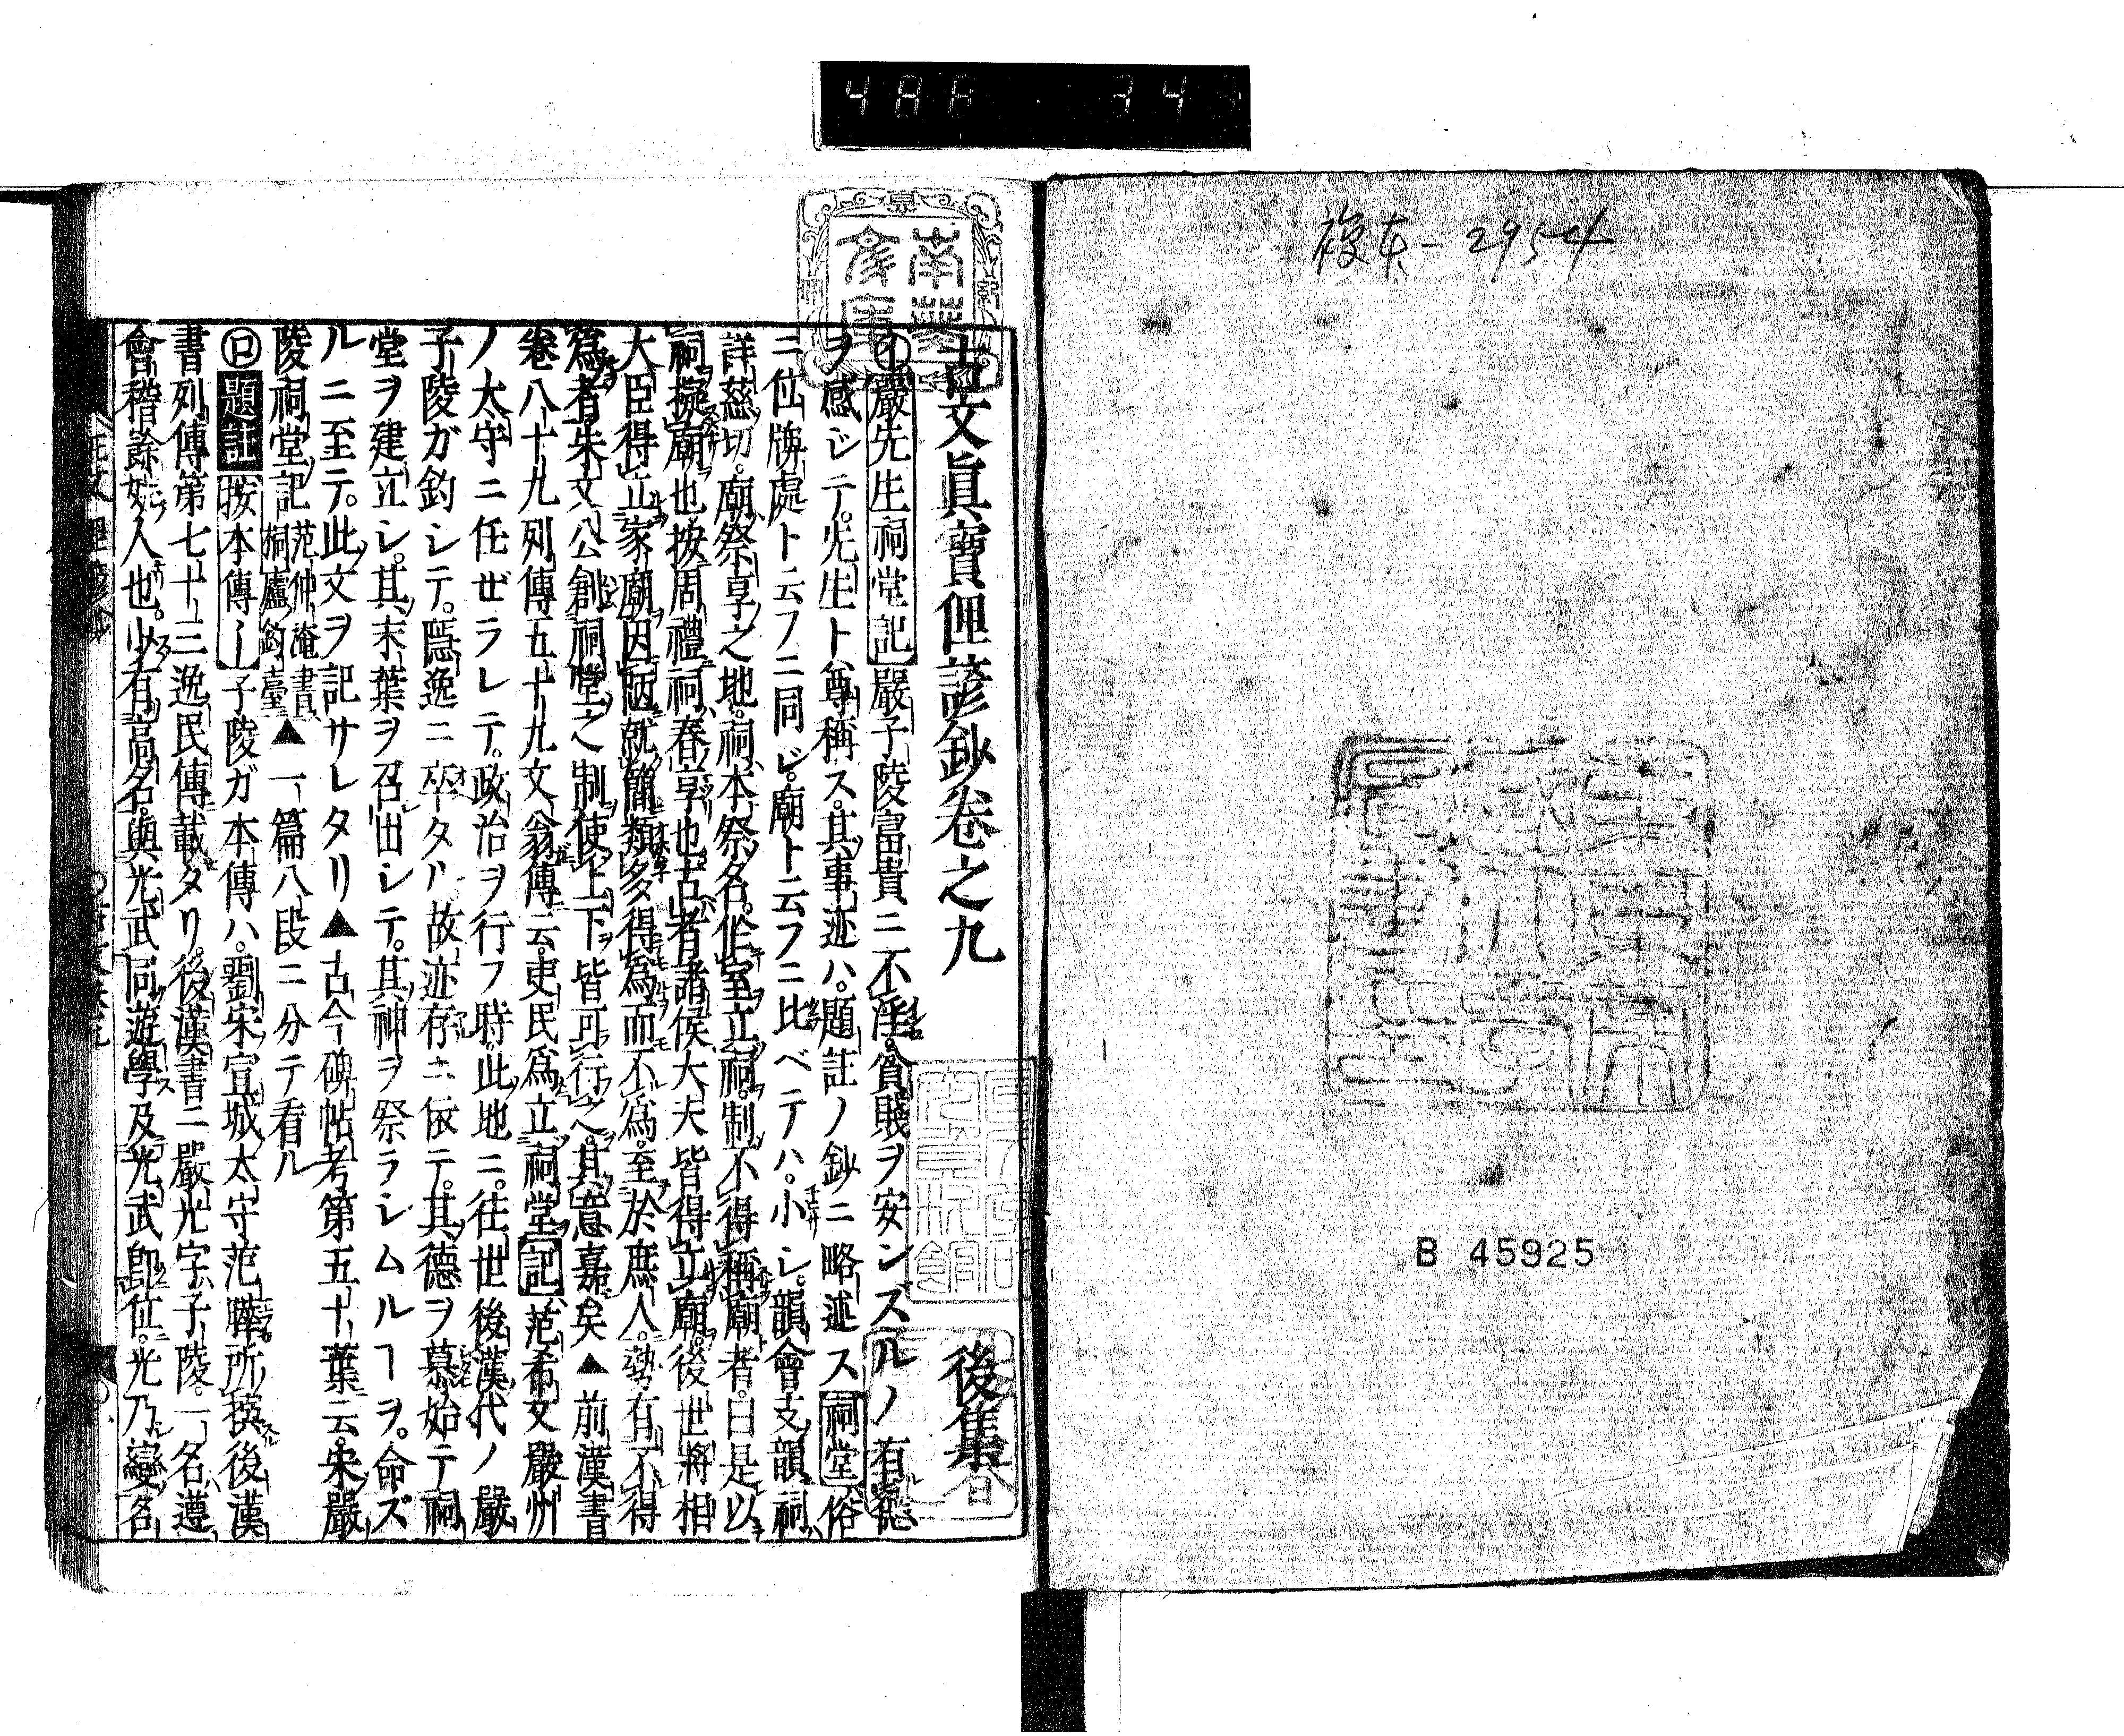 486 34
複本-2954
B 45925
古文眞寶俚諺鈔卷之九 後集
㋑嚴先生祠堂記嚴子陵富貴ニ不淫。貧賤ヲ安ンズルノ有德
ヲ感ジテ。先生ト尊稱ス。其事迹ハ。題註ノ鈔ニ略述ス祠堂俗
ニ位牌處ト云フニ同ジ。廟ト云フニ比ベテハ。小シ。韻會支韻祠
詳慈切。廟祭享之地。祠本祭名。作室立祠。制不得稱廟者。曰是以
祠擬廟也按周禮祠春享也古者諸侯大夫皆得立廟。後世將相
大臣得立家廟因陋就簡類多得爲而不爲。至於庶人。勢有不得
爲者朱文公創祠堂之制使上下皆可行之。其意嘉矣▲前漢書
卷八十九列傳五十九文翁傳云。吏民爲立祠堂記范希文嚴州
ノ太守ニ任ゼラレテ。政治ヲ行フ時。此地ニ。往世後漢代ノ嚴
子陵ガ釣シテ。隱逸ニ卒タル故迹存ニ依テ。其德ヲ慕始テ祠
堂ヲ建立シ。其末葉ヲ召出シテ。其神ヲ祭ラシムルヿヲ。命ズ
ルニ至テ。此文ヲ記サレタリ▲古今碑帖考第五十葉云。宋嚴
陵祠堂記范仲淹書桐廬釣臺▲一篇八段ニ分テ看ル
㋺題註按本傳ー子陵ガ本傳ハ。劉宋宣城太守范曄所撰後漢
書列傳第七十三逸民傳載タリ。後漢書ニ嚴光字子陵。一名遵
會稽餘姚人也。少有高名與光武同遊學及光武卽位。光乃變名